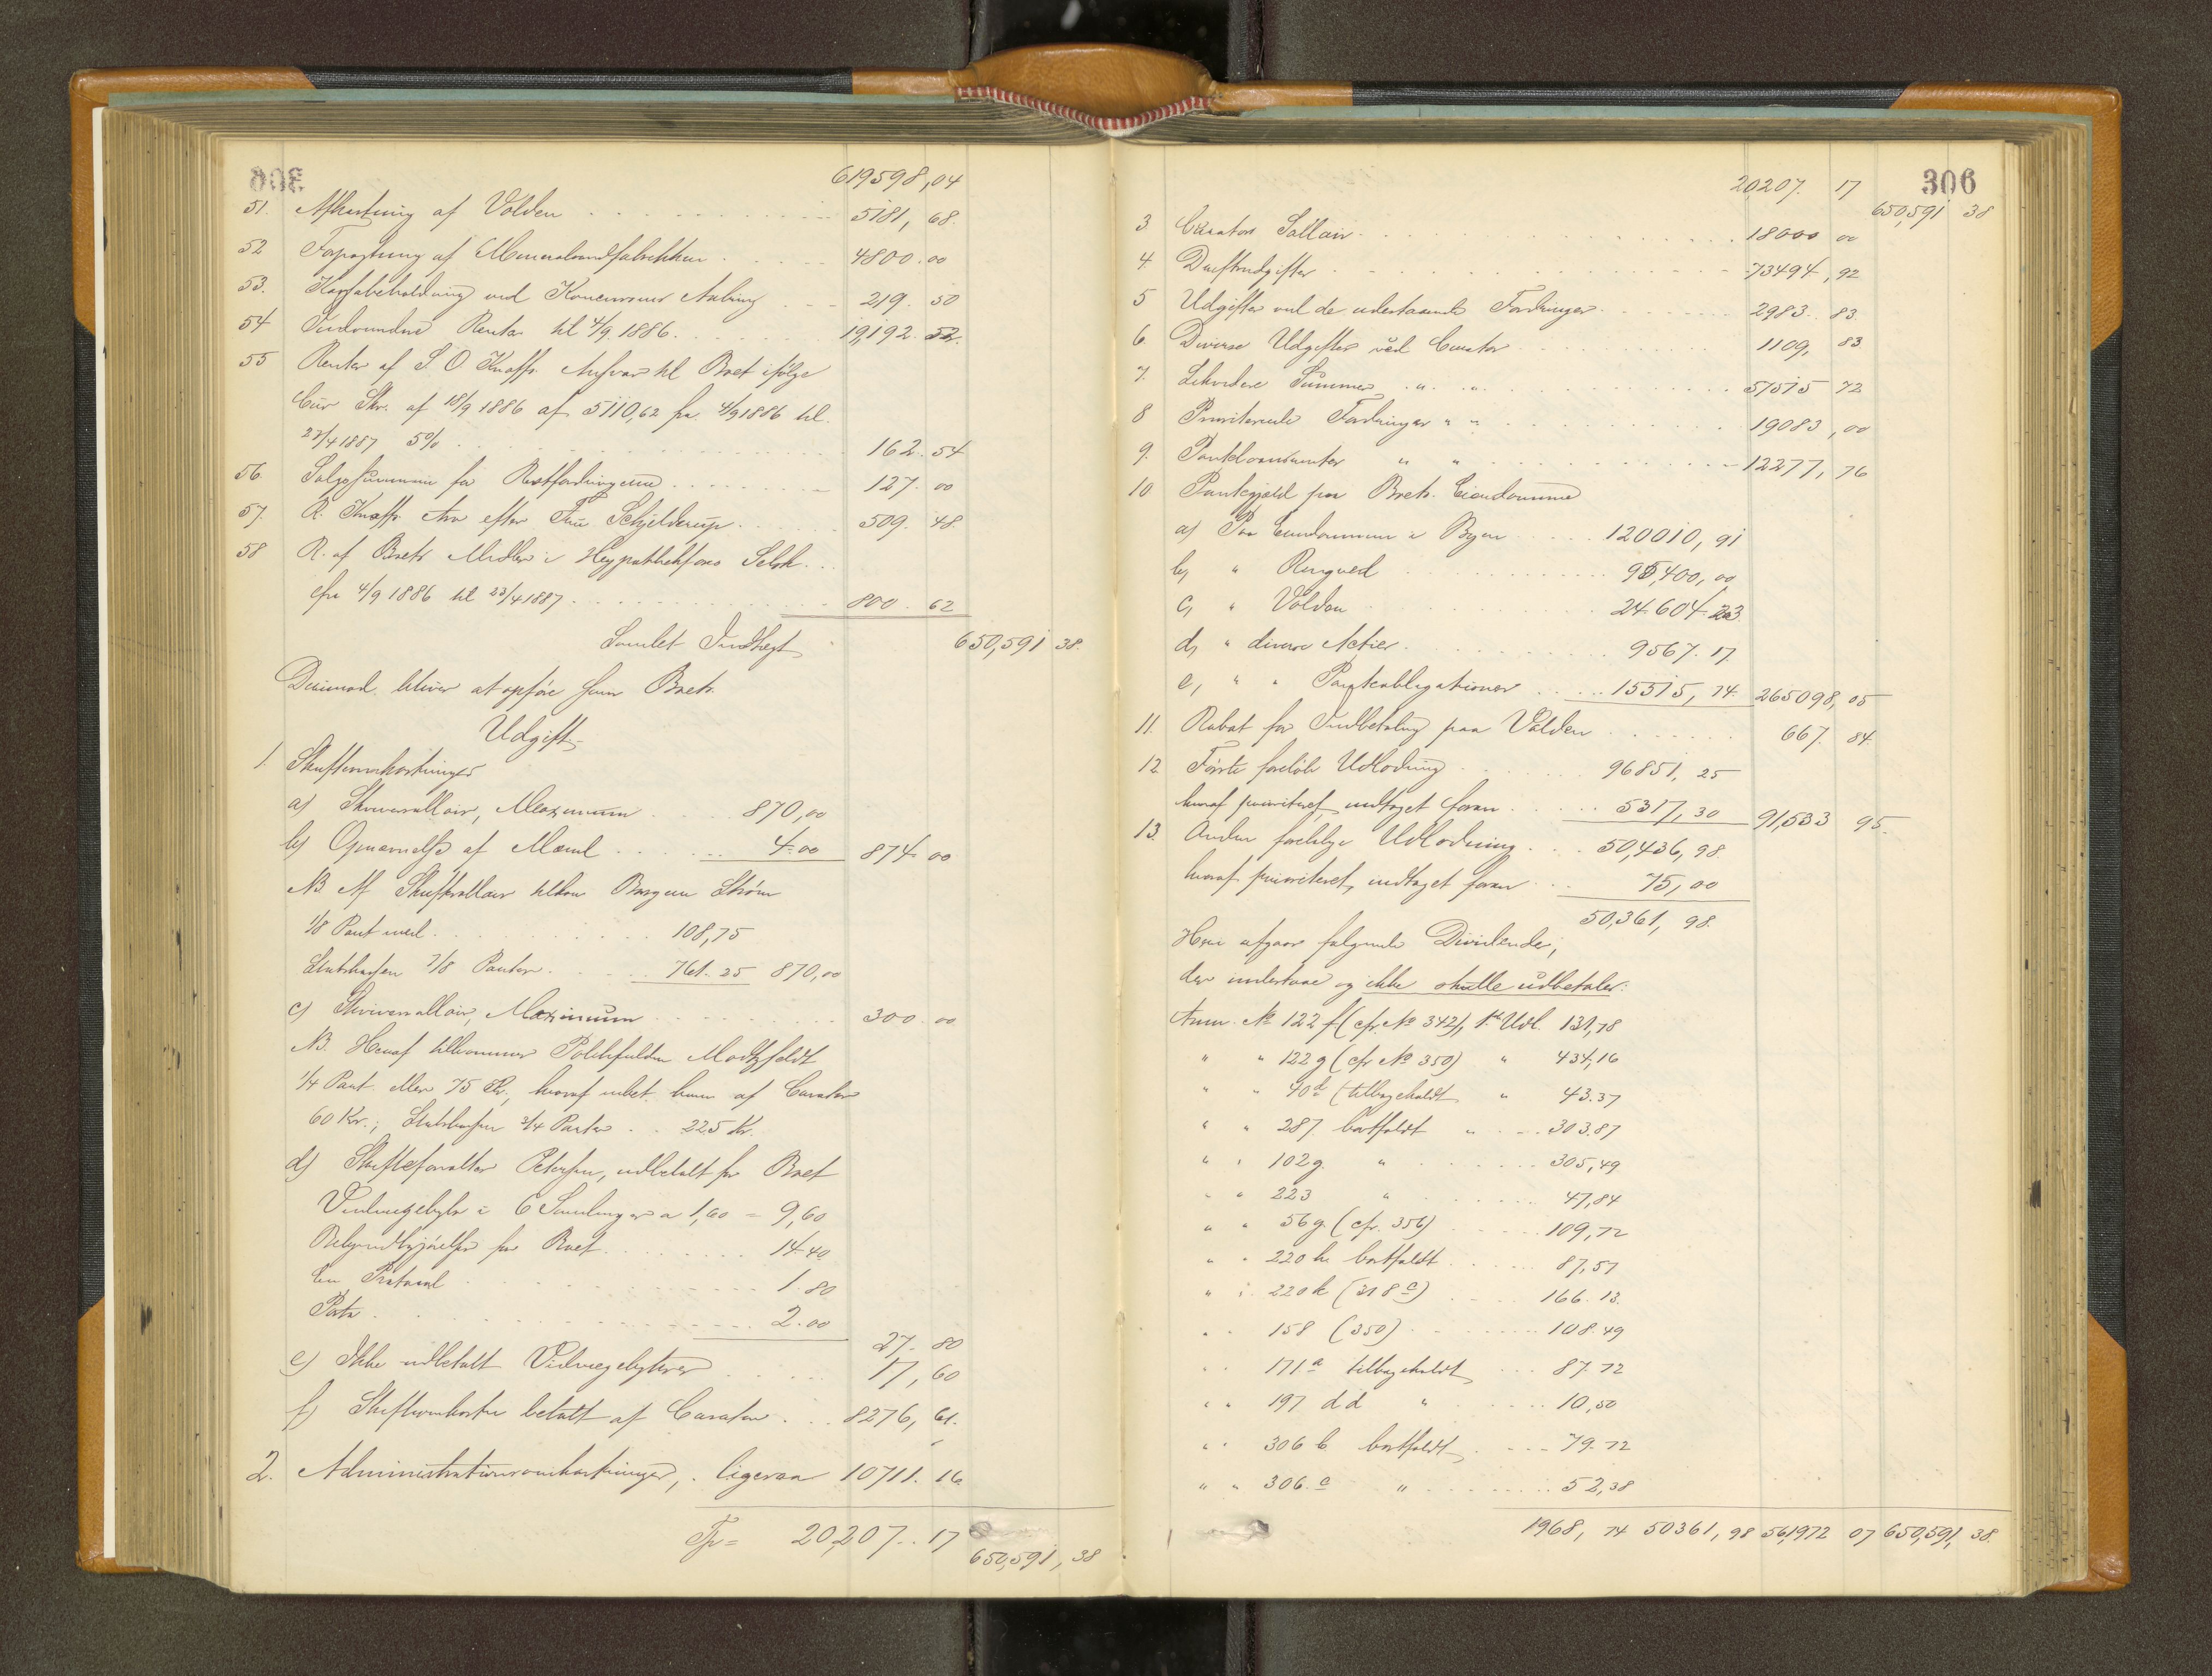 619598,04
51. Afkastning af Volden 5181, 68.
52 Forpagtning af Mineralvandfabrikken 4800.00
53. Kassabeholdning ved Konkursens Aabning 219. 50
54 Indvundne Renter til 4/9 1886. 19,192. 52.
55 Renter af S. O Knoffs Ansvar til Boet ifølge
Cur Skr. af 18/9 1886 af 5110,62 fra 4/9 1886 til
23/4 1887 5% 162. 54
56. Salgssummen for Restfordringerne 127. 00
57. R. Knoffs Arv efter Fru Schjelderup. 509. 48.
58 R. af Boets Midler i Hypothekfors Selsk.
fra 4/9 1886 til 23/4 1887. 800. 62
Samlet Indtægt 650,591 38.
Derimod bliver at opføre som Boets
Udgift.
1. Skifteomkostninger
a) Skriversallair, Maximum 870,00
b) Opnævnelse af Mænd 4.00 874. 00
NB Af Skiftesallair tilkom Borgerm Strøm
1/8 Part med 108,75
Statskassen 7/8 Parter 761. 25 870,00
c) Skriversallair, Maximum 300. 00
NB. Heraf tilkommer Politifuldm Motzfeldt
1/4 Part eller 75 Kr., hvoraf udbet. ham af Curator
60 Kr.; Statskassen 3/4 Parter 225 Kr.
d) Skifteforvalter Petersen, udbetalt for Boet
Vidnegebyhr i 6 Samlinger a 1,60 = 9,60
Bekjendtgjørelse for Boet 14.40
En Protocol 1. 80
Porto 2.00
27. 80
e) Ikke udbetalt Vidnegebyhrer 17, 60
f) Skifteomkostn betalt af Curator 8276, 61.
2. Administrationsomkostninger, ligesaa 10711. 16.
Tr= 20,207. 17
650,591, 38
306
20,207. 17
650,591 38
3 Curators Sallair 18000 00
4. Driftsudgifter 73494, 92
5 Udgifter ved de udestaaende Fordringer 2983. 83.
6. Diverse Udgifter ved Curator 1109, 83
7. Likvidere Summer " " 51515 72
8 Prioriterede Fordringer " " 19083, 00
9. Panteloansrenter " " 12277, 76
10 Pantegjæld paa Boets Eiendomme
a) Paa Eiendommen i Byen 120010, 91
b, " Ringved 95,400,00
c, " Volden 24.604. 23
d, " diverse Actier 9567. 17.
e, " " Panteobligationer 15515, 74. 265098, 05
11. Rabat for Indbetaling paa Volden 667. 84.
12. Første foreløb Udlodning 96851, 25
hvoraf prioriteret, indtaget foran 5317, 30 91,533 95.
13. Anden foreløbige Udlodning 50,436, 98.
hvoraf prioriteret, indtaget foran 75, 00
50,361, 98.
Heri afgaar følgende Dividende,
der indestaae og ikke skulle udbetales:
Anm. No 122 f (cfr. No 342), 1ste Udl. 131,78
" " 122 g (cfr No 350) " 434,16
" " 40 d (tilbageholdt " 43.37
" " 287 bortfaldt " 303.87
" " 102 g. " 305,49
" " 223 " 47,84
" " 56 g. (cfr. 356) 109,72
" " 220 h bortfaldt 87,57
" " 220 k (318 c) 166. 13.
" " 158 (350) 108.49
" " 171 a tilbageholdt 87.72
" " 197 d d " 10,50
" " 306 b bortfaldt 79.72
" " 306. c " 52,38
1968, 74 50361, 98 561972 07 650,591, 38.